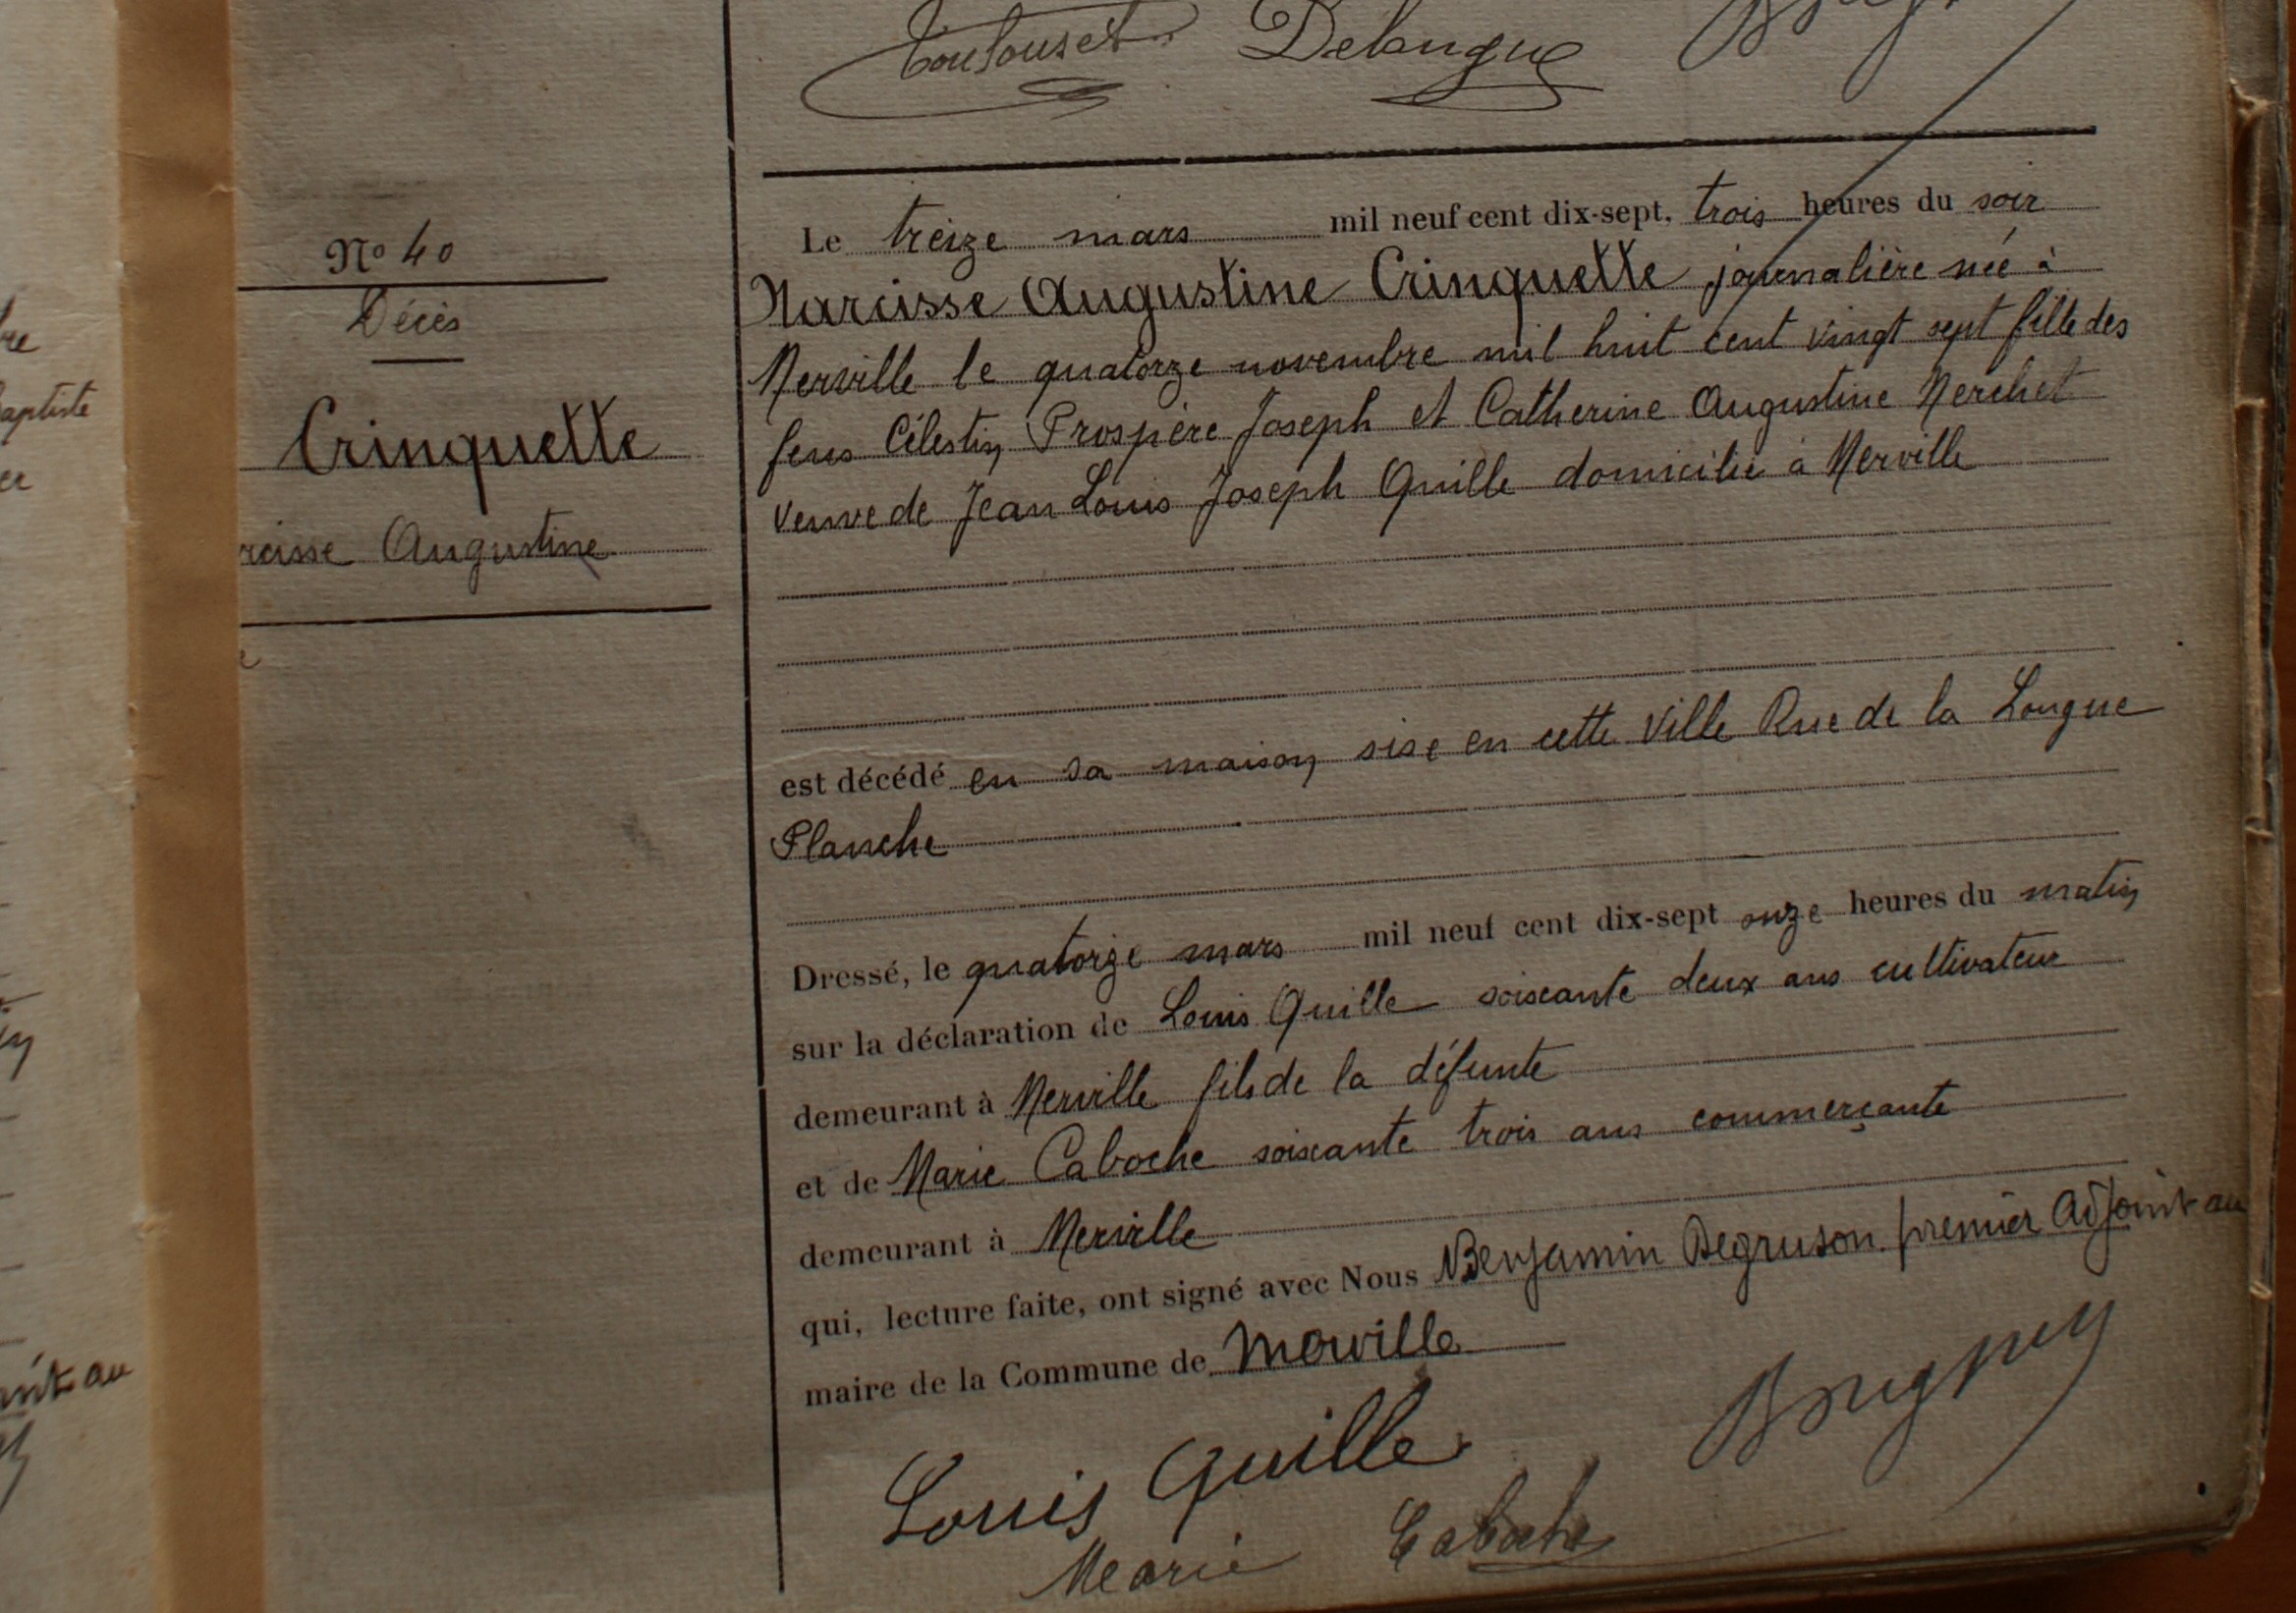 Toulouset Delangue
N° 40
Décès
Crinquette
rcisse Augustine
Le treize mars mil neuf cent dix-sept, trois heures du soir
Narcisse Augustine Crinquette journalière née à
Merville le quatorze novembre mil huit cent vingt sept fille des
feus Célestin Prospère Joseph et Catherine Augustine Merchet
veuve de Jean Louis Joseph Quille domicilié à Merville
est décédé en sa maison sise en cette Ville Rue de la Longue
Planche
Dressé, le quatorze mars mil neuf cent dix-sept onze heures du matin
sur la déclaration de Louis Quille soixante deux ans cultivateur
demeurant à Merville fils de la défunte
et de Marie Caboche soixante trois ans commerçante
demeurant à Merville
qui, lecture faite, ont signé avec Nous Benjamin Degruson premier Adjoint au
maire de la Commune de Merville
Louis Quille
Marie Caboche
aptiste